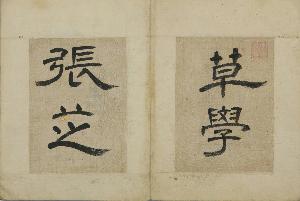 草學
張芝